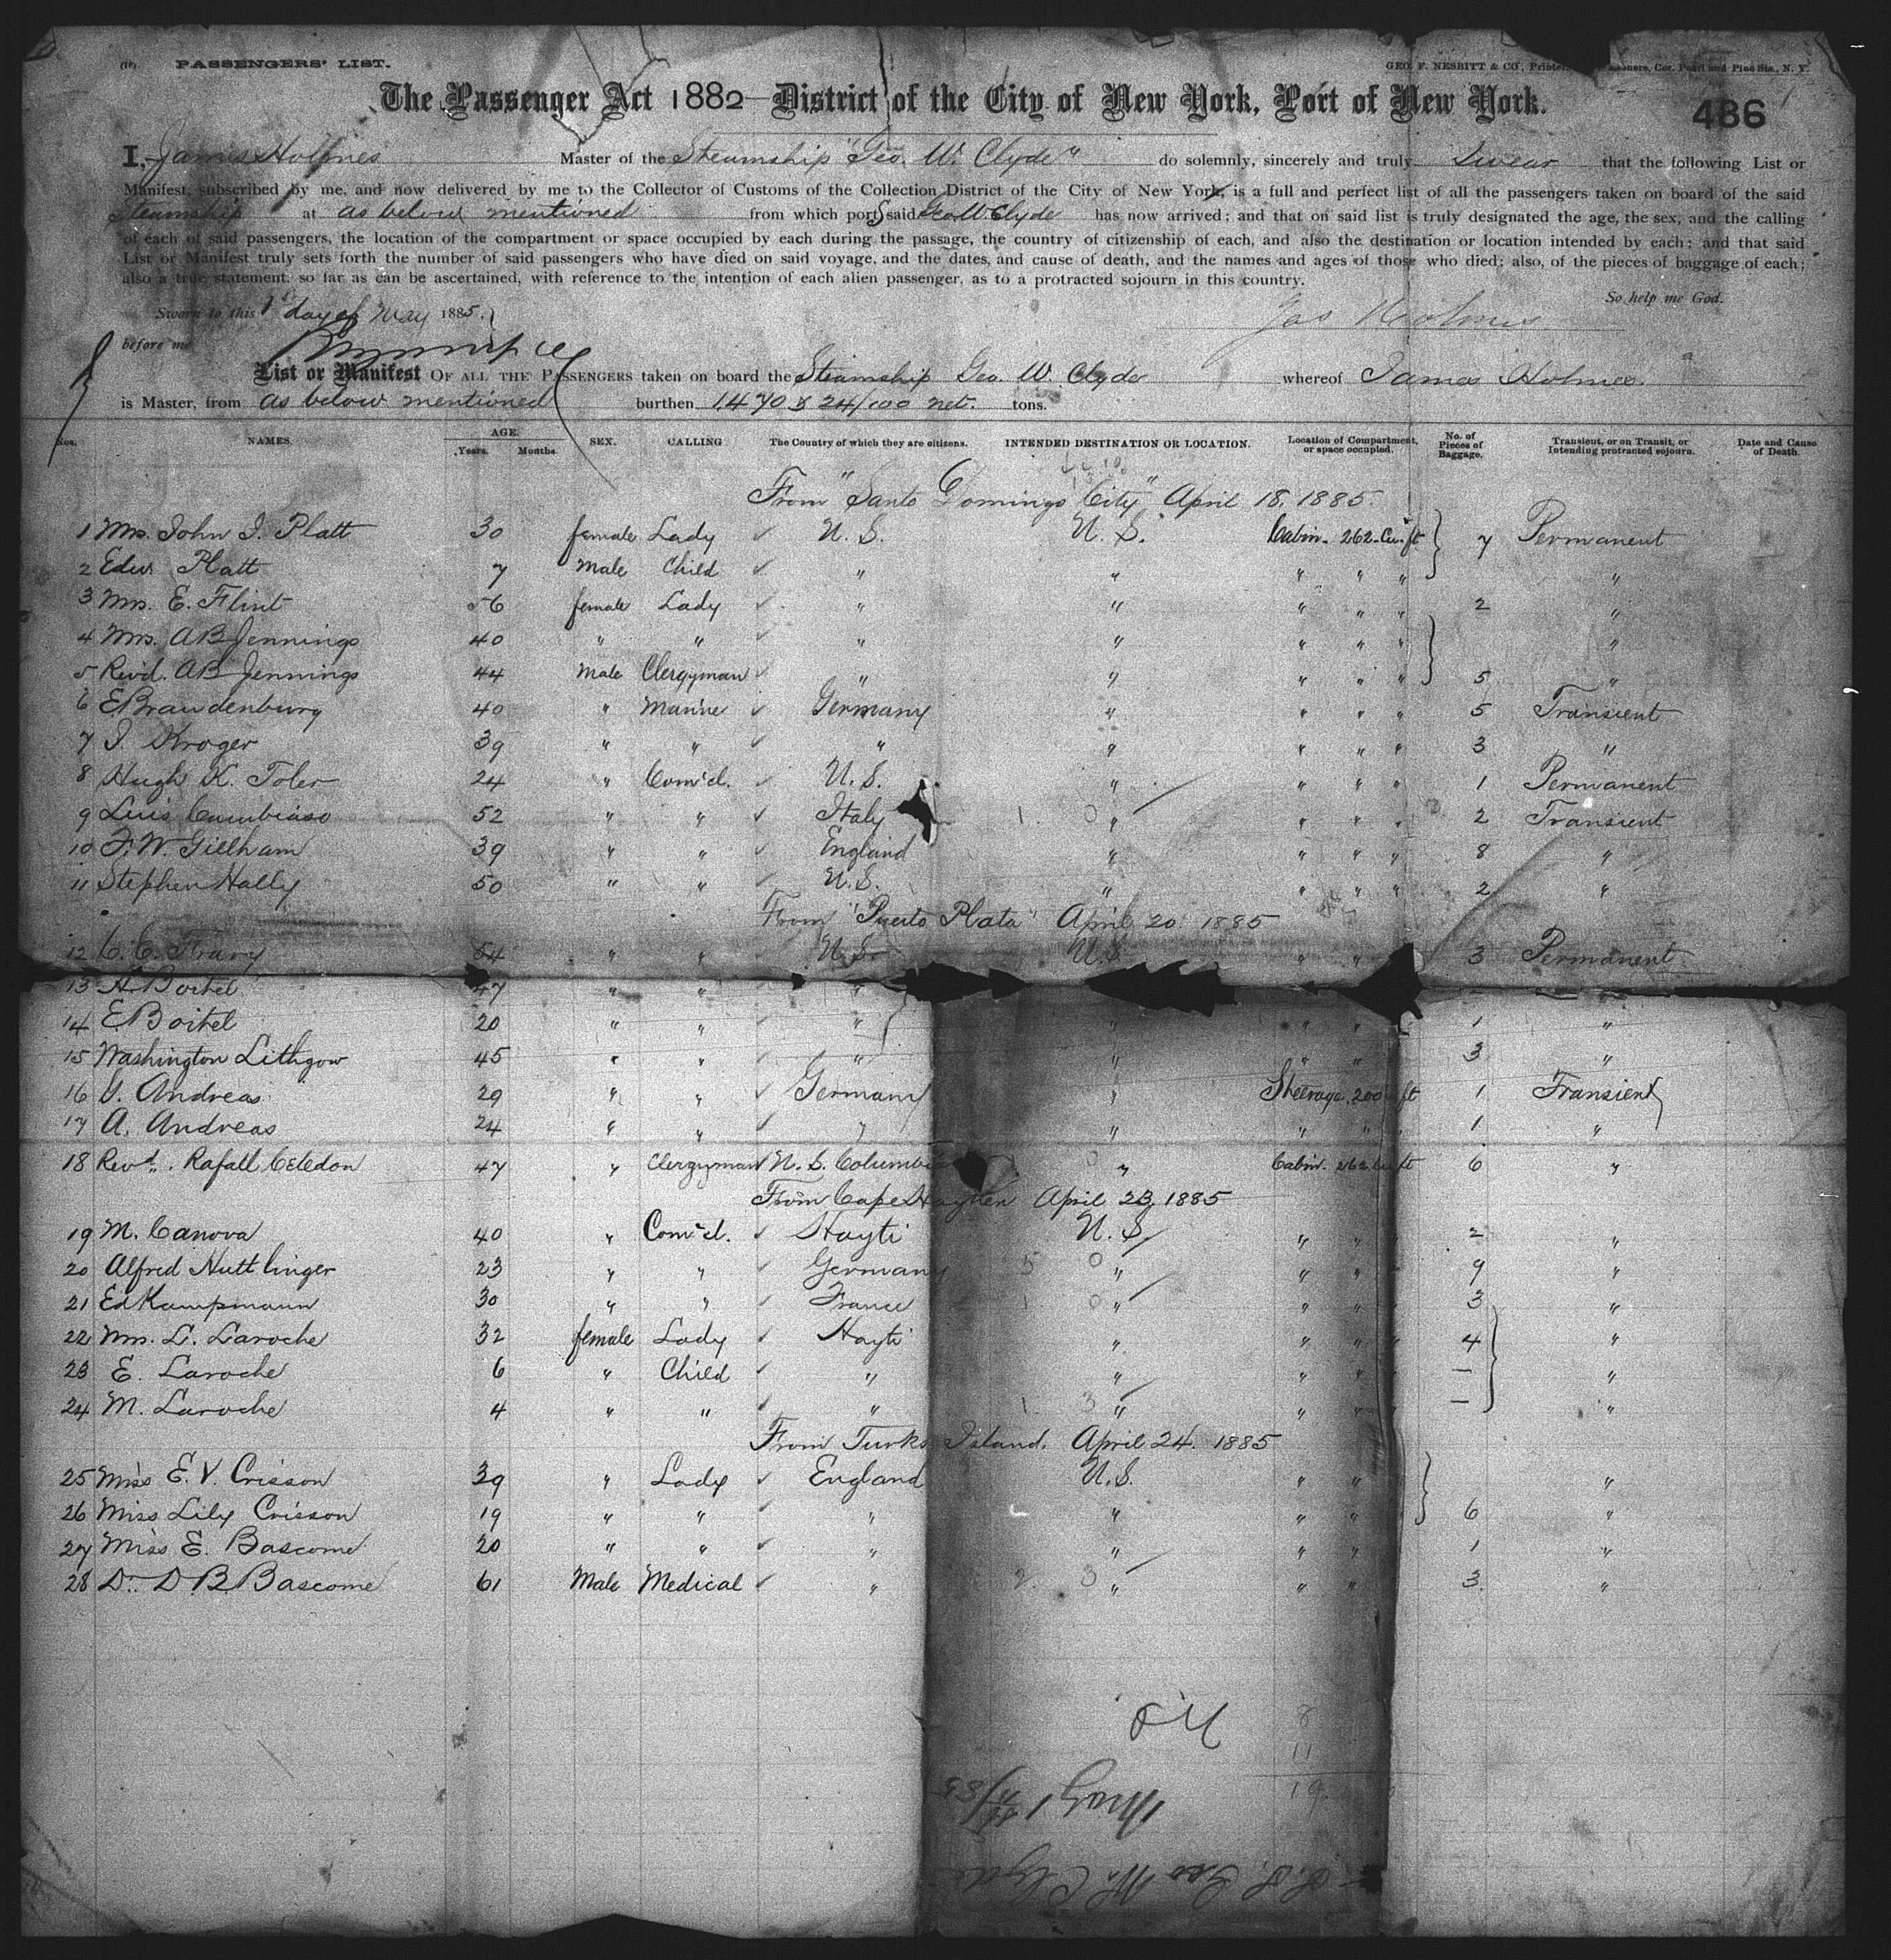 PASSENGERS' LIST.
GEO. F. NESBITT & CO., Cor. Pearl and Pine Sts., N. Y.
The Passenger Act 1882 District of the City of New York, Port of New York.
486
I, James Holmes Master of the Steamship "Geo. W. Clyde" do solemnly, sincerely and truly Swear that the following List or
Manifest, subscribed by me, and now delivered by me to the Collector of Customs of the Collection District of the City of New York, is a full and perfect list of all the passengers taken on board of the said
Steamship at as below mentioned from which port said Geo W Clyde has now arrived; and that on said list is truly designated the age, the sex, and the calling
of each of said passengers, the location of the compartment or space occupied by each during the passage, the country of citizenship of each, and also the destination or location intended by each; and that said
List or Manifest truly sets forth the number of said passengers who have died on said voyage, and the dates, and cause of death, and the names and ages of those who died; also, of the pieces of baggage of each;
also a true statement, so far as can be ascertained, with reference to the intention of each alien passenger, as to a protracted sojourn in this country.
So help me God.
Sworn to this 1st day of May 1885.
Jas Holmes
before me
List or Manifest OF ALL THE PASSENGERS taken on board the Steamship Geo. W. Clyde whereof James Holmes
is Master, from as below mentioned burthen 1,470 & 24/100 net. tons.
Nos. NAMES. AGE. Years. Months. SEX. CALLING The Country of which they are citizens. INTENDED DESTINATION OR LOCATION. Location of Compartment, or space occupied. No. of Pieces of Baggage. Transient, or on Transit, or Intending protracted sojourn. Date and Cause of Death.
From "Santo Domingo City" April 18, 1885.
1 Mrs. John J. Platt 30 female Lady U. S. U. S. Cabin. 262 Cu. ft 7 Permanent
2 Edw. Platt 7 Male Child " " " " " "
3 Mrs. E. Flint 56 female Lady " " " " " 2 "
4 Mrs. A B Jennings 40 " " " " " " " "
5 Revd. A B Jennings 44 Male Clergyman " " " " " 5 "
6 E Brandenburg 40 " Marine Germany " " " " 5 Transient
7 J. Kroger 39 " " " " " " " 3 "
8 Hugh K. Toler 24 " Com'cl. U. S. " " " " 1 Permanent
9 Luis Cambiaso 52 " " Italy 1. 0 " " " " 2 Transient
10 F. W. Gillham 39 " " England " " " " 8 "
11 Stephen Hally 50 " " U. S. " " " " 2 "
From "Puerto Plata" April 20. 1885
12 C. C. 54 " " U. S. U. S. " " 3 Permanent
13 A. Boitel 47 " " "
14 E. Boitel 20 " " " " " " 1 "
15 Washington Lithgow 45 " " " " " " 3 "
16 Andreas 29 " " Germany " Steerage, 200 ft 1 Transient
17 A. Andreas 24 " " " " " " 1 "
18 Revd. Rafall Celedon 47 " Clergyman U. S. Columbia 0 " Cabin. 262 Cu ft 6 "
From Cape Hayten April 23, 1885
19 M. Canova 40 " Com'cl. Hayti U. S. " " 2 "
20 Alfred Huttlinger 23 " " Germany 5 0 " " " 9 "
21 Ed Kampmann 30 " " France 1 0 " " " 3 "
22 Mrs. L. Laroche 32 female Lady Hayti " " " " 4 "
23 E. Laroche 6 " Child " " " " " — "
24 M. Laroche 4 " " " 1. 3 " " " " — "
From Turks Island. April 24. 1885
25 Miss E. V. Crisson 39 " Lady England U. S. " " "
26 Miss Lily Crisson 19 " " " " " " 6 "
27 Miss E. Bascome 20 " " " " " " 1 "
28 Dr. D. B. Bascome 61 Male Medical " 2. 3 " " " 3. "
8
11
19
May 1st/85
S.S. Geo W. Clyde